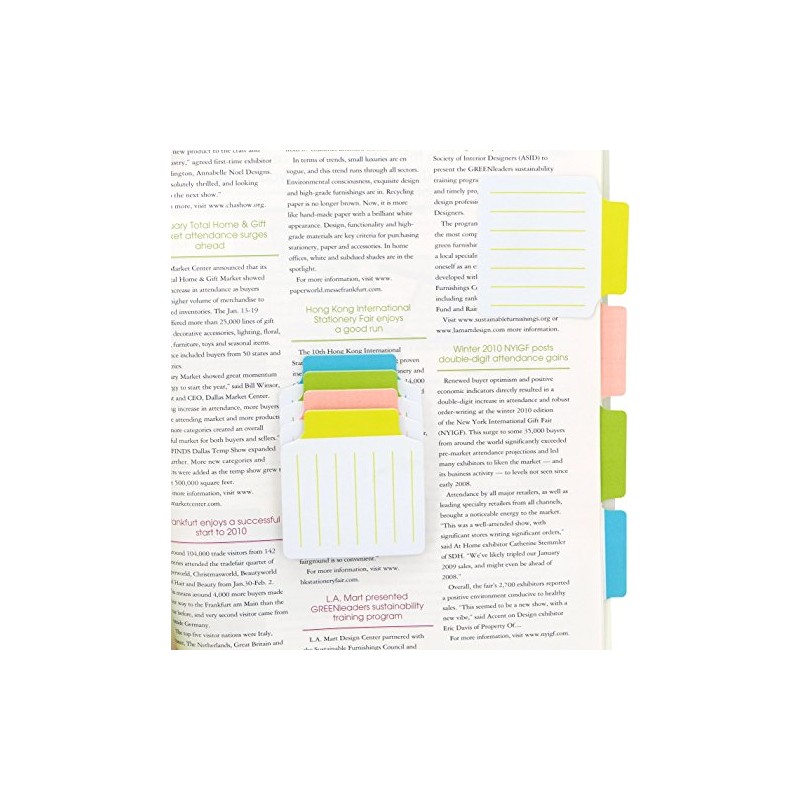 new product to the craft and
ustry," agreed first-time exhibitor
lington, Annabelle Noel Designs.
solutely thrilled, and looking
o the next show."
r more, visit www.chashow.org.
uary Total Home & Gift
ket attendance surges
ahead
Market Center announced that its
l Home & Gift Market showed
increase in attendance as buyers
higher volume of merchandise to
ed inventories. The Jan. 13-19
ffered more than 25,000 lines of gift
decorative accessories, lighting, floral,
furniture, toys and seasonal items.
ce included buyers from 50 states and
ries.
Market showed great momentum
gy to start the year," said Bill Winsor,
t and CEO, Dallas Market Center.
g increase in attendance, more buyers
e attending market and more
ore categories created an overall
l market for both buyers and sellers."
FINDS Dallas Temp Show expanded
rther. More new categories and
s were added as the temp show grew
500,000 square feet.
r more information, visit www.
arketcenter.com.
ankfurt enjoys a successful
start to 2010
ound 104,000 trade visitors from 142
ies attended the tradefair quartet of
perworld, Christmasworld, Beautyworld
Hair and Beauty from Jan. 30-Feb. 2.
means around 4,000 more buyers made
way to the Frankfurt am Main than the
e before, and very second visitor came from
side Germany.
The top-five visitor nations were Italy,
The Netherlands, Great Britain and
In terms of trends, small luxuries are en
vogue, and this trend runs through all sectors.
Environmental consciousness, exquisite design
and high-grade furnishings are in. Recycling
paper is no longer brown. Now, it is more
like hand-made paper with a brilliant white
appearance. Design, functionality and high-
grade materials are key criteria for purchasing
stationery, paper and accessories. In home
offices, white and subdued shades are in the
spotlight.
For more information, visit www.
paperworld.messefrankfurt.com.
Hong Kong International
Stationery Fair enjoys
a good run
The 10th Hong Kong International
Sta
proven
ectronery and
14,000
fairground is so convenient."
For more information, visit www.
hkstationeryfair.com.
L.A. Mart presented
GREENleaders sustainability
training program
L.A. Mart Design Center partnered with
the Sustainable Furnishings Council and
Society of Interior Designers (ASID) to
present the GREENleaders sustainability
training progra
and timely pro
design professi
Designers.
The program
the most comp
green furnishin
a local speciali
oneself as an e
developed with
Furnishings C
including rank
Fund and Rain
Visit www.sustainablefurnishings.org or
www.lamartdesign.com more information.
Winter 2010 NYIGF posts
double-digit attendance gains
Renewed buyer optimism and positive
economic indicators directly resulted in a
double-digit increase in attendance and robust
order-writing at the winter 2010 edition
of the New York International Gift Fair
(NYIGF). This surge to some 35,000 buyers
from around the world significantly exceeded
pre-market attendance projections and led
many exhibitors to liken the market — and
its business activity — to levels not seen since
early 2008.
Attendance by all major retailers, as well as
leading specialty retailers from all channels,
brought a noticeable energy to the market.
"This was a well-attended show, with
significant stores writing significant orders,"
said At Home exhibitor Catherine Stemmler
of SDH, "We've likely tripled our January
2009 sales, and might even be ahead of
2008."
Overall, the fair's 2,700 exhibitors reported
a positive environment conducive to healthy
sales. "This seemed to be a new show, with a
new vibe," said Accent on Design exhibitor
Eric Davis of Property Of....
For more information, visit www.nyigf.com.